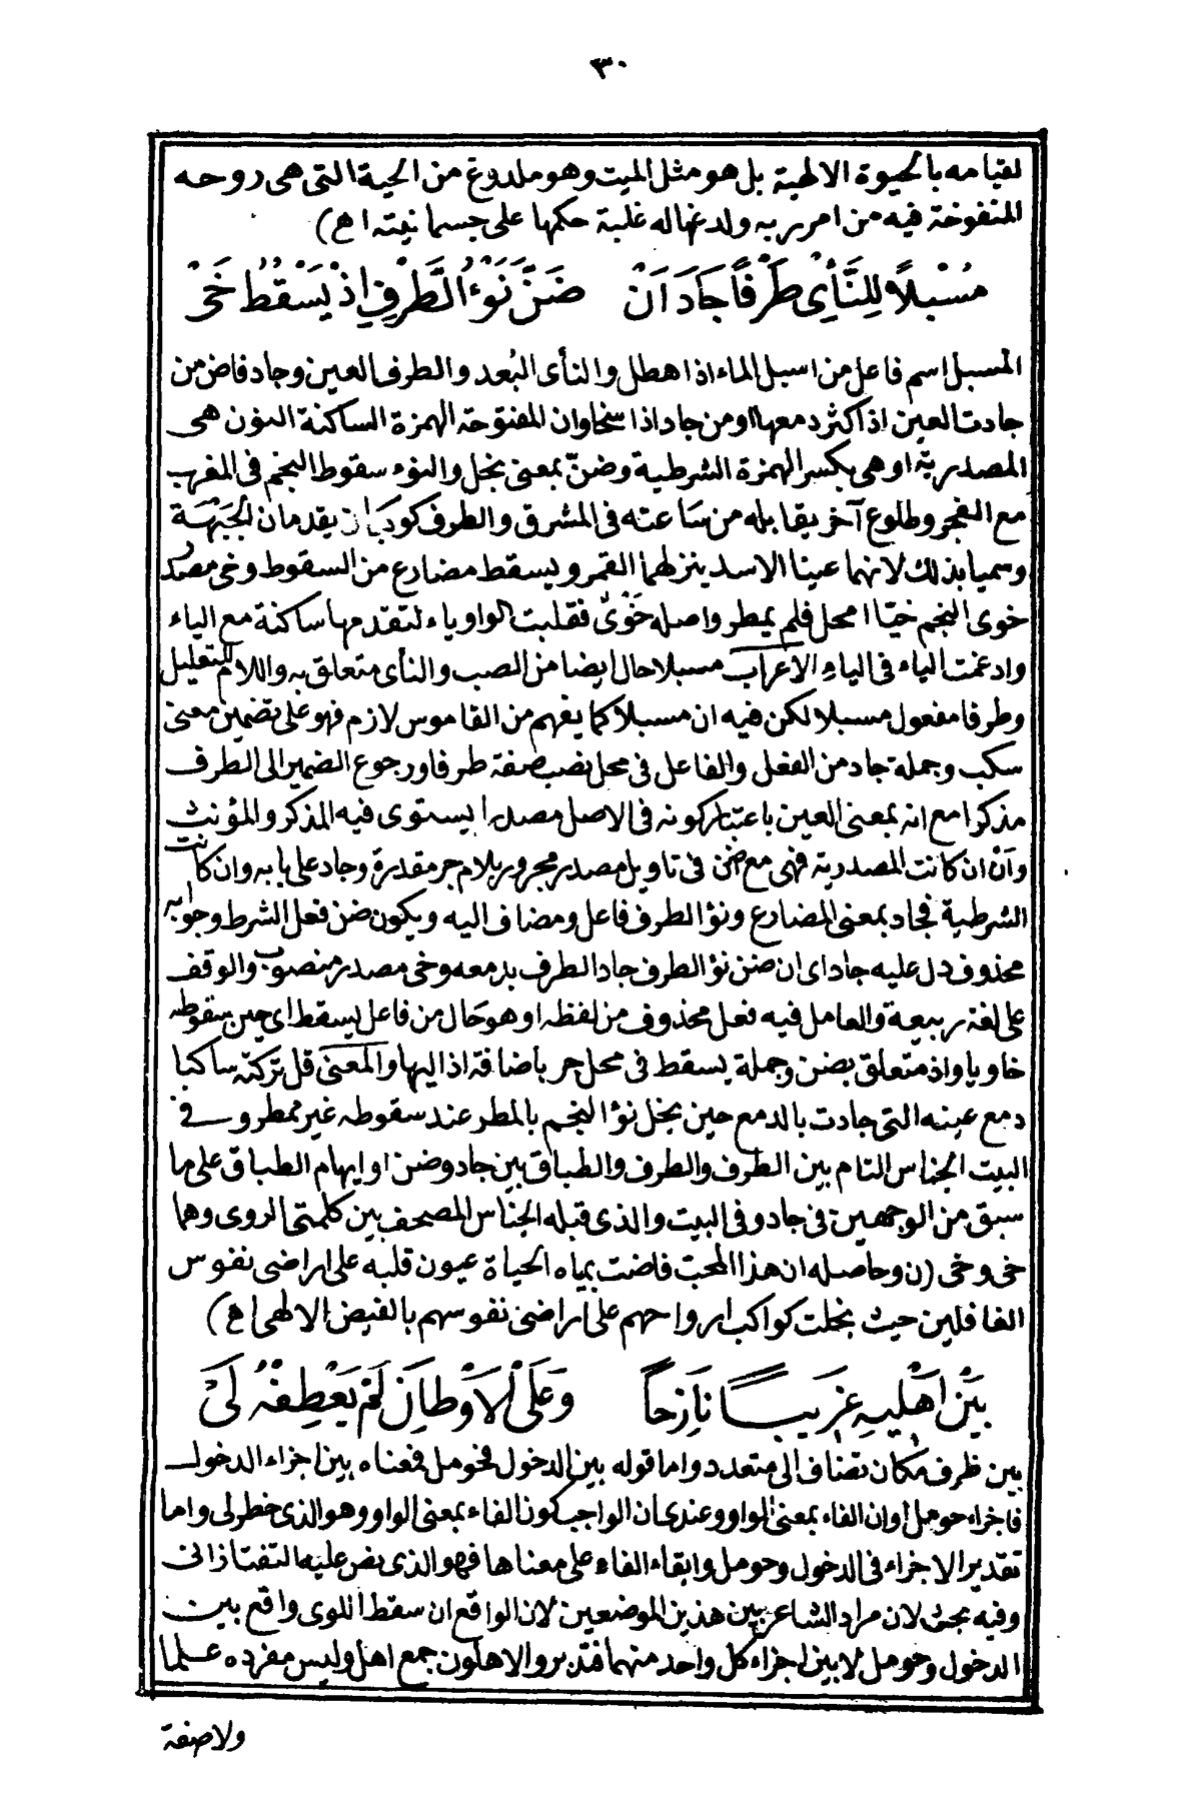 ٣٠
لقيامه بالحيوة الالهية بل هو مثل الميت وهو ملدوغ من الحية التى هى روحه
المنفوخة فيه من امر ربه ولدغها له غلبة حكمها على جسمانيته اهـ)
مُسْبِلاً لِلنَّأْيِ طَرْفًا جَادَ اَنْ ضَنَّ نَوْءُ الطَّرْفِ اِذْ يَسْقُطُ خَىْ
المسبل اسم فاعل من اسبل الماء اذا هطل والنأى البُعد والطرف العين وجاد فاض من
جادت العين اذا كثر دمعها او من جاد اذا سخا وان المفتوحة الهمزة الساكنة النون هى
المصدرية او هى بكسر الهمزة الشرطية وضنّ بمعنى بخل والنوء سقوط النجم فى المغرب
مع الفجر وطلوع آخر يقابله من ساعته فى المشرق والطرف كوكبان يقدمان الجَبْهَة
وسميا بذلك لانهما عينا الاسد ينزلهما القمر ويسقط مضارع من السقوط وخى مصدر
خوى النجم خيّا امحل فلم يمطر واصله خَوْىٌ فقلبت الواو ياء لتقدمها ساكنة مع الياء
وادغمت الياء فى الياء الاعراب مسبلا حال ايضا من الصب والنأى متعلق به واللام للتعليل
وطرفا مفعول مسبلا لكن فيه ان مسبلا كما يفهم من القاموس لازم فهو على تضمين معنى
سكب وجملة جاد من الفعل والفاعل فى محل نصب صفة طرفا ورجوع الضمير الى الطرف
مذكرا مع انه بمعنى العين باعتبار كونه فى الاصل مصدرا يستوى فيه المذكر والمؤنث
وأنْ ان كانت المصدرية فهى مع ضن فى تاويل مصدر مجرور بلام جر مقدرة وجاد على بابه وان كانت
الشرطية فجاد بمعنى المضارع ونؤ الطرف فاعل ومضاف اليه ويكون ضن فعل الشرط وجوابه
محذوف دل عليه جاد اى ان ضن نؤ الطرف جاد الطرف بدمعه وخى مصدر منصوب والوقف
على لغة ربيعة والعامل فيه فعل محذوف من لفظه او هو حال من فاعل يسقط اى حين سقوطه
خاويا واذ متعلق بضن وجملة يسقط فى محل جر باضافة اذ اليها والمعنى قل تركته ساكبا
دمع عينه التى جادت بالدمع حين بخل نؤ النجم بالمطر عند سقوطه غير ممطر وفى
البيت الجناس التام بين الطرف والطرف والطباق بين جاد وضن او ايهام الطباق على ما
سبق من الوجهين فى جاد وفى البيت والذى قبله الجناس المصحف بين كلمتى الروى وهما
حى وخى (ن وحاصله ان هذا المحب فاضت بمياه الحياة عيون قلبه على اراضى نفوس
الغافلين حيث بخلت كواكب ارواحهم على اراضى نفوسهم بالفيض الالهى اهـ)
بَيْنَ اَهْلِيهِ غَرِيبًا نَازِحًا وَعَلَى الْاَوْطَانِ لَمْ يَعْطِفْهُ لَىْ
بين ظرف مكان تضاف الى متعدد واما قوله بين الدخول فحومل فمعناه بين اجزاء الدخول
فاجزاء حومل او ان الفاء بمعنى الواو وعندى ان الواجب كون الفاء بمعنى الواو وهو الذى خطر لى واما
تقدير الاجزاء فى الدخول وحومل وابقاء الفاء على معناها فهو الذى نص عليه التفتازانى
وفيه بحث لان مراد الشاعر بين هذين الموضعين لان الواقع ان سقط اللوى واقع بين
الدخول وحومل لا بين اجزاء كل واحد منهما فتدبر والاهلون جمع اهل وليس مفرده علما
ولا صفة